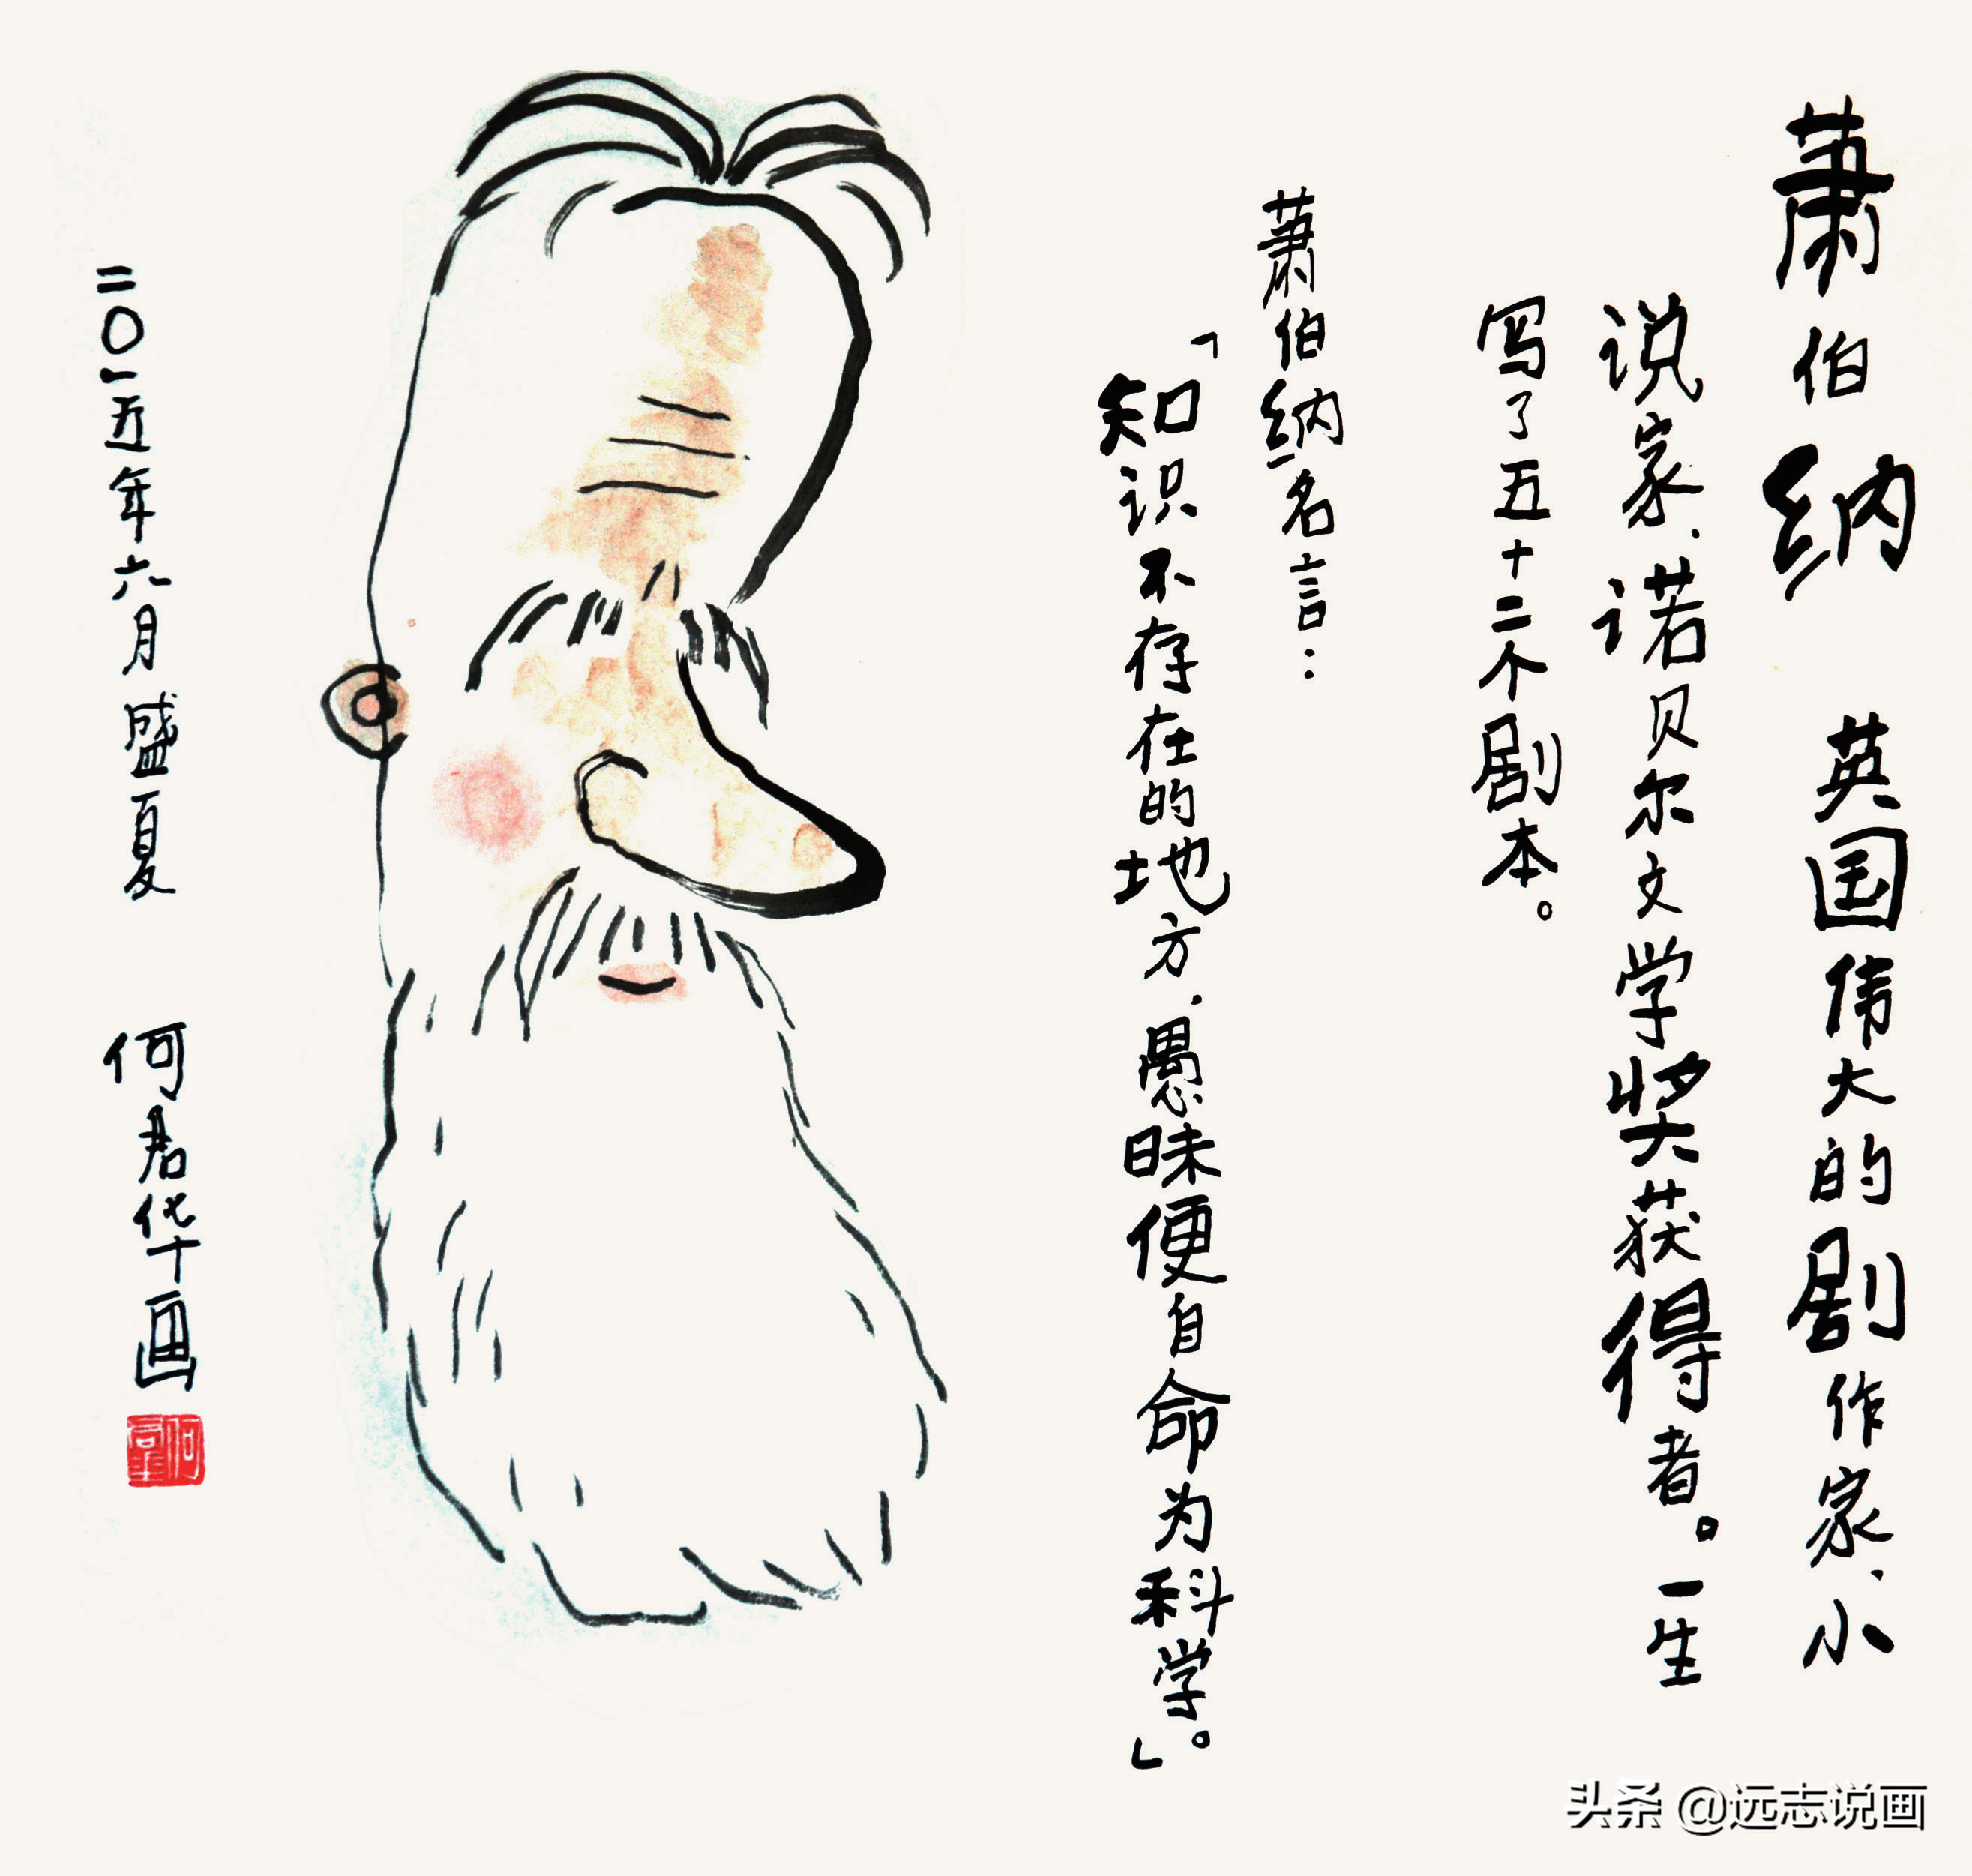 萧伯纳 英国伟大的剧作家、小
说家、诺贝尔文学奖获得者。一生
写了五十二个剧本。
萧伯纳名言：
「知识不存在的地方、愚昧便自命为科学。」
二〇一五年六月盛夏 何君华画
头条 @远志说画